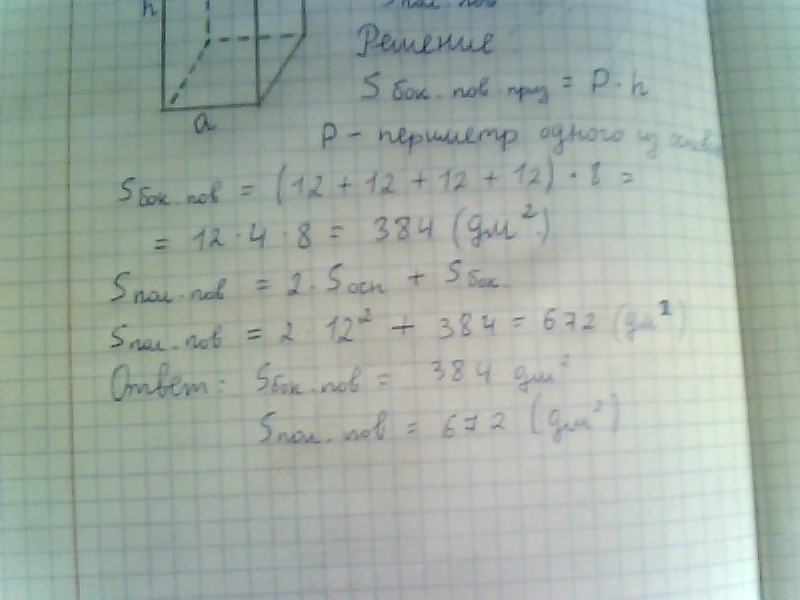 h
пол. пов
Решение:
S бок. пов приз = P · h
a
P - периметр одного из
S бок. пов = (12 + 12 + 12 + 12) · 8 =
= 12 · 4 · 8 = 384 (дм²)
S пол. пов = 2 · S осн + S бок.
S пол. пов = 2 · 12² + 384 = 672 (дм²)
Ответ: S бок. пов = 384 дм²
S пол. пов = 672 (дм²)